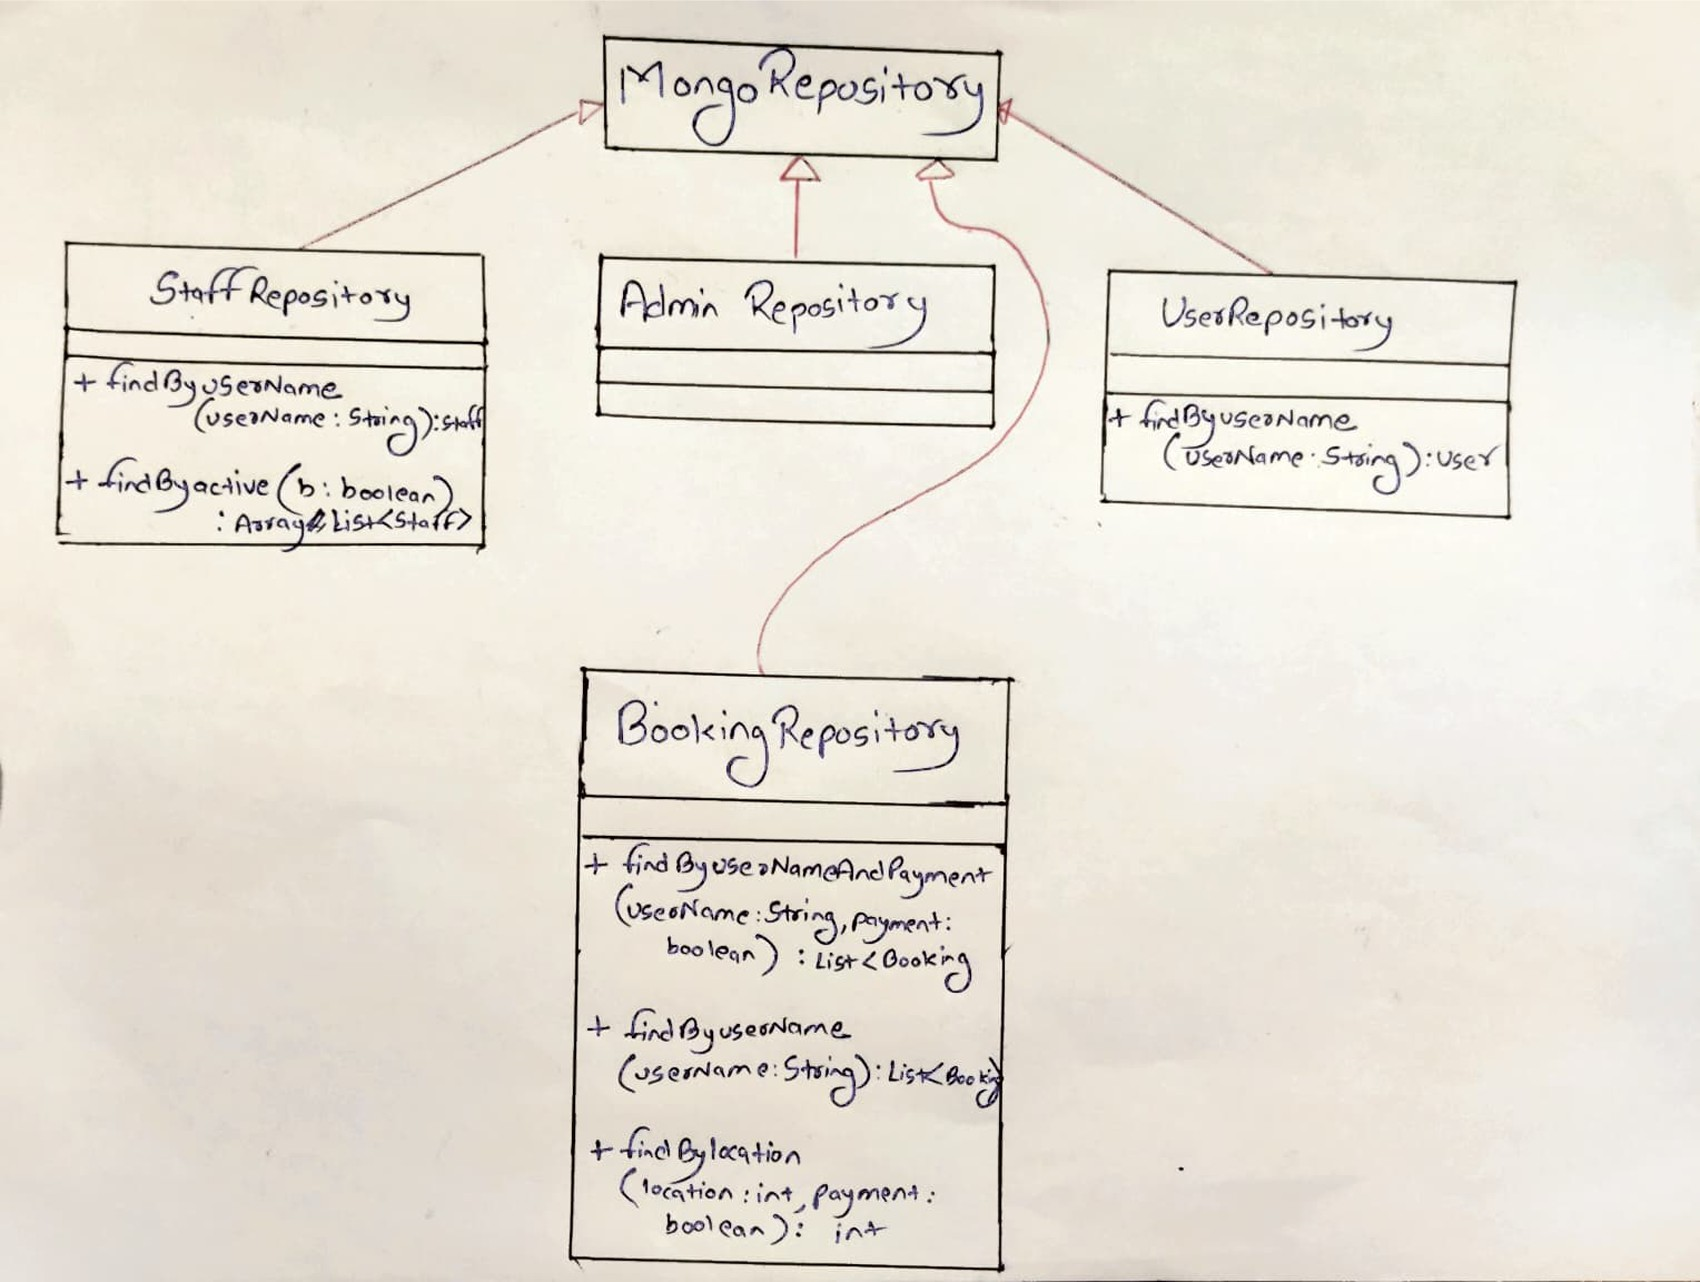 MongoRepository
StaffRepository
+ findByuserName
(userName: String):Staff
+ findByactive (b: boolean)
: ArrayList<Staff>
Admin Repository
UserRepository
+ findByuserName
(userName: String): user
BookingRepository
+ findByuserNameAndPayment
(userName: String, payment:
boolean) : List<Booking
+ findByuserName
(userName: String): List<Booking
+ findBylocation
(location: int, payment:
boolean): int